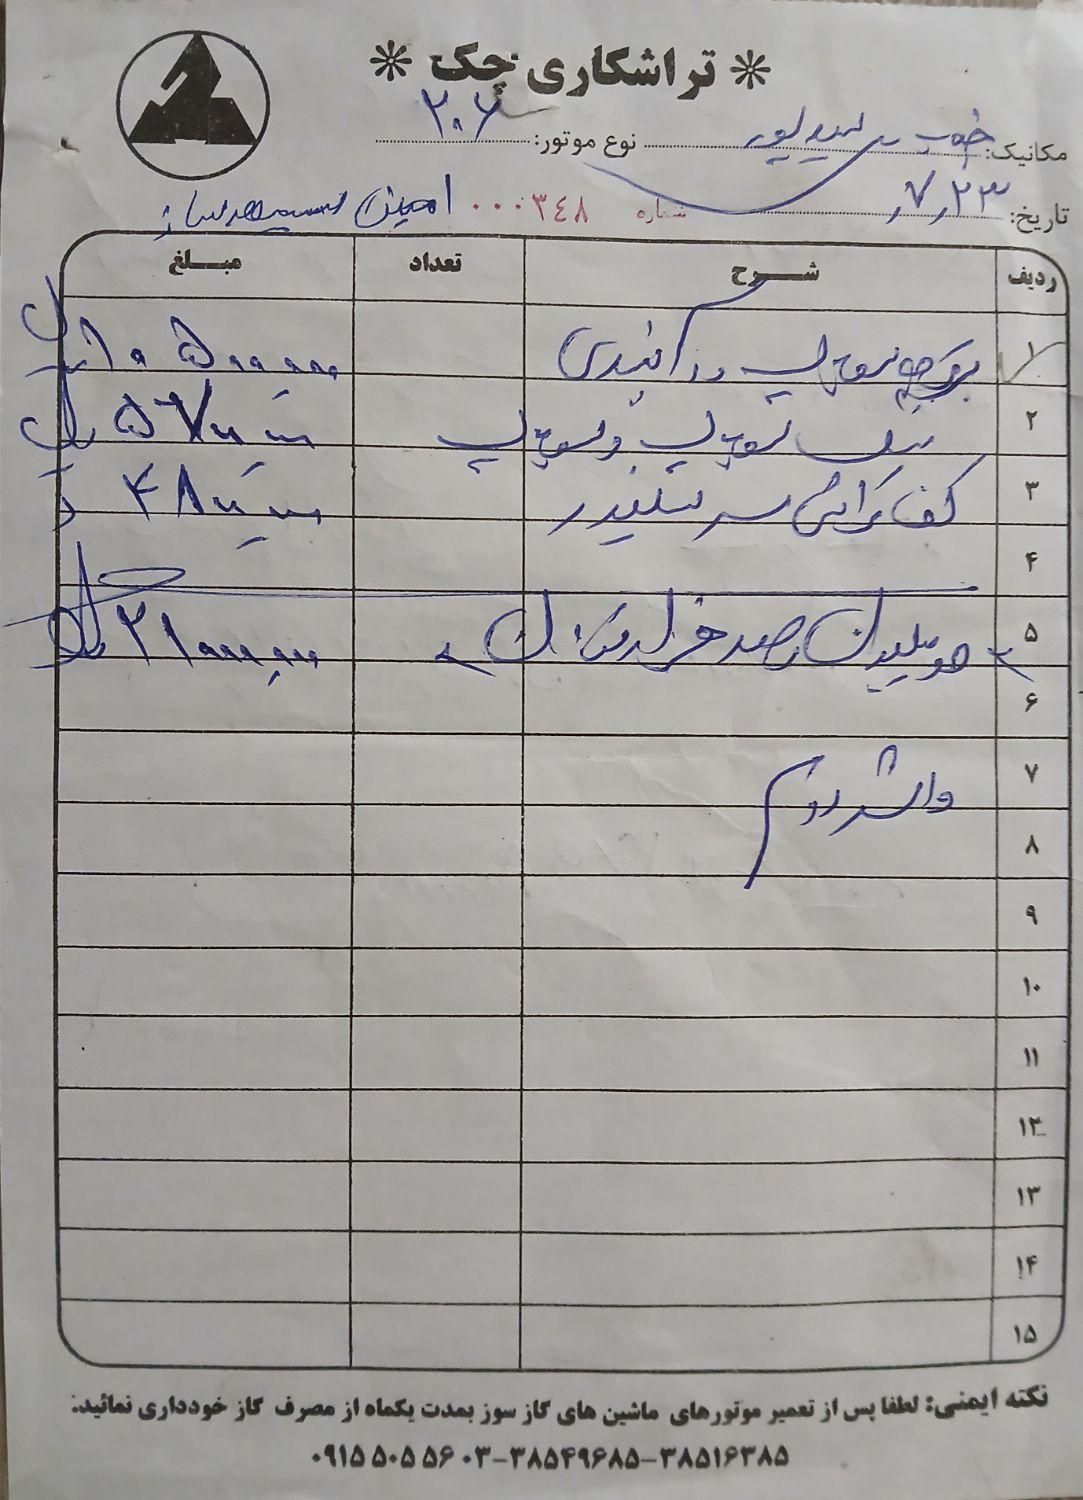 * تراشکاری چک *
مکانیک: خوب نوع موتور: ۲۰۶
تاریخ: ۷٫۲۳ شماره ۰۰۰۳۴۸ امین
ردیف شرح تعداد مبلغ
۱ ۱۰۵۰۰۰۰۰ ریال
۲ سوپاپ ۵۷۰۰۰۰۰ ریال
۳ کف تراشی سرسیلندر ۴۸۰۰۰۰۰ ر
۴
۵ دو میلیون صد هزار تومان ۲۱۰۰۰۰۰۰ ریال
۶
۷ واشر دوم
۸
۹
۱۰
۱۱
۱۲
۱۳
۱۴
۱۵
نکته ایمنی: لطفا پس از تعمیر موتورهای ماشین های گاز سوز بمدت یکماه از مصرف گاز خودداری نمائید.
۰۹۱۵ ۵۰۵ ۵۶ ۰۳-۳۸۵۴۹۶۸۵-۳۸۵۱۶۳۸۵